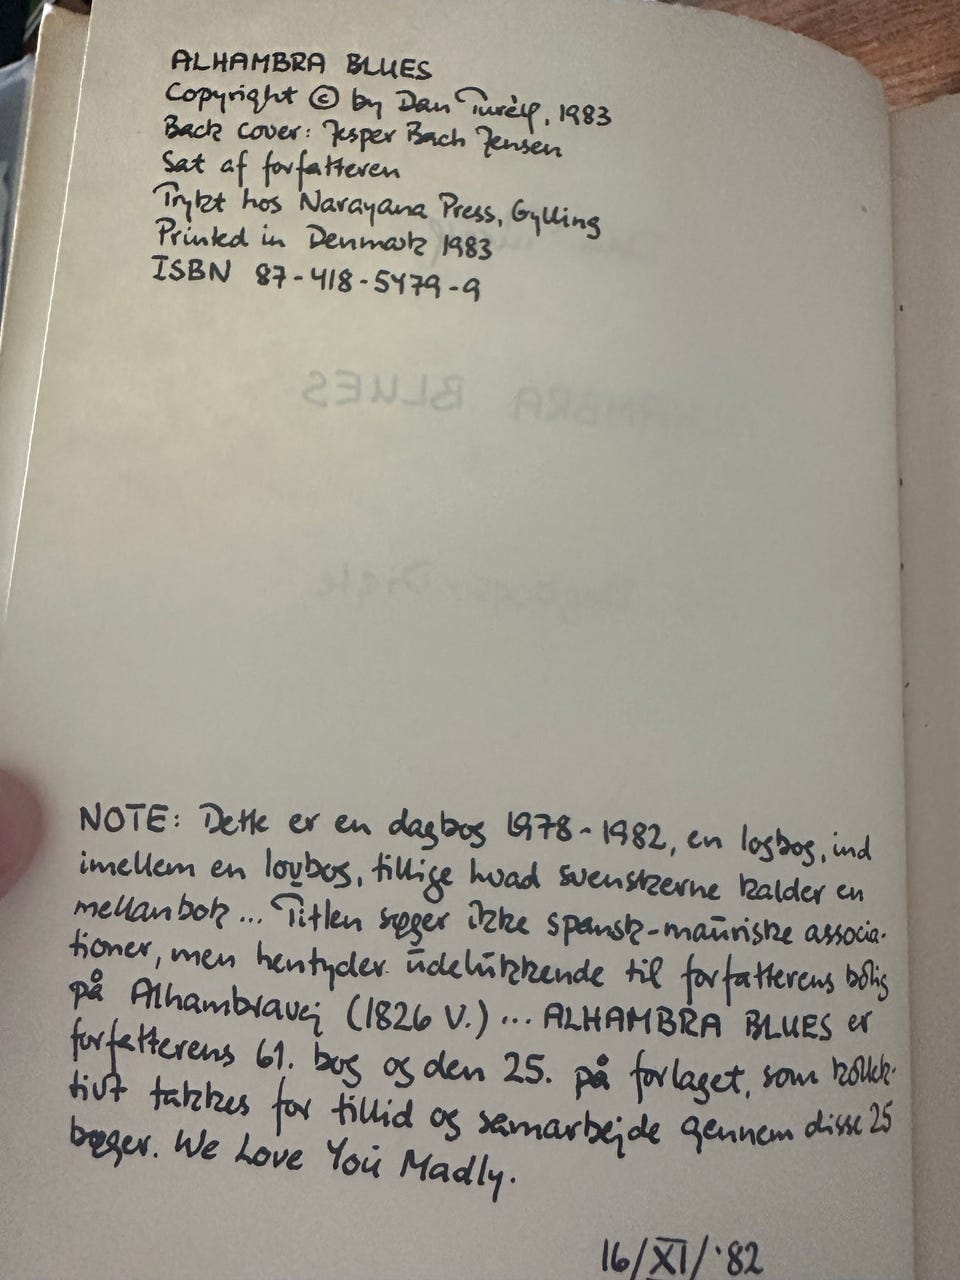 ALHAMBRA BLUES
Copyright © by Dan Turèll, 1983
Back cover: Jesper Bach Jensen
Sat af forfatteren
Trykt hos Narayana Press, Gylling
Printed in Denmark 1983
ISBN 87-418-5479-9
ALHAMBRA BLUES
Digte
NOTE: Dette er en dagbog 1978-1982, en logbog, ind
imellem en lovbog, tillige hvad svenskerne kalder en
mellanbok... Titlen søger ikke spansk-mauriske associa-
tioner, men hentyder udelukkende til forfatterens bolig
på Alhambravej (1826 V.)... ALHAMBRA BLUES er
forfatterens 61. bog og den 25. på forlaget, som kollek-
tivt takkes for tillid og samarbejde gennem disse 25
bøger. We Love You Madly.
16/XI/'82